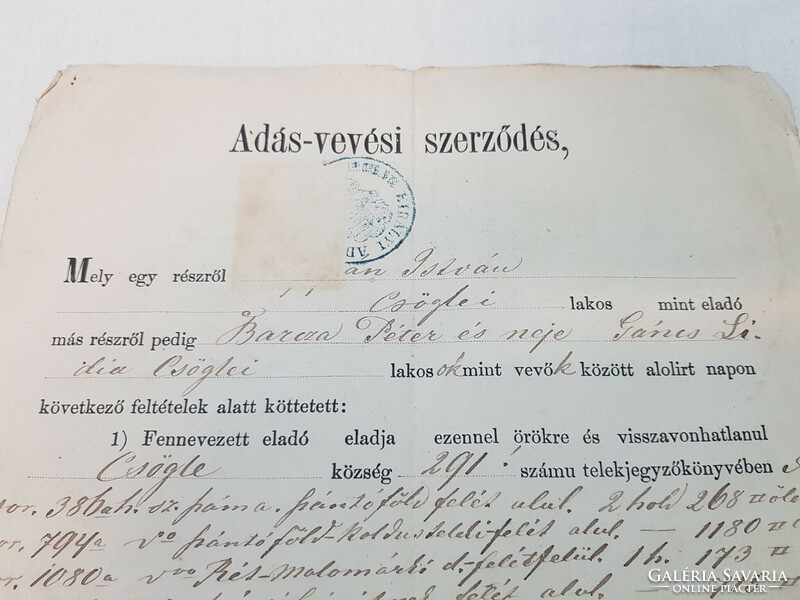 Adás-vevési szerződés,
KIRÁLYI AD
Mely egy részről István
Csöglei lakos mint eladó
más részről pedig Barcza Péter és neje Gáncs Li-
dia Csöglei lakosok mint vevők között alolirt napon
következő feltételek alatt köttetett:
1) Fennevezett eladó eladja ezennel örökre és visszavonhatlanul
Csögle község 291 számu telekjegyzőkönyvében
386 ah. sz. szántóföld felét alul. 2 hold 268 □ öl
794a szántóföld-Koldustelki-felét alul. — 1180 □
1080a Rét-Malomárki d.-felét felül. 1 h. 173 □
felét alul.
GALÉRIA SAVARIA
ONLINE PIACTÉR